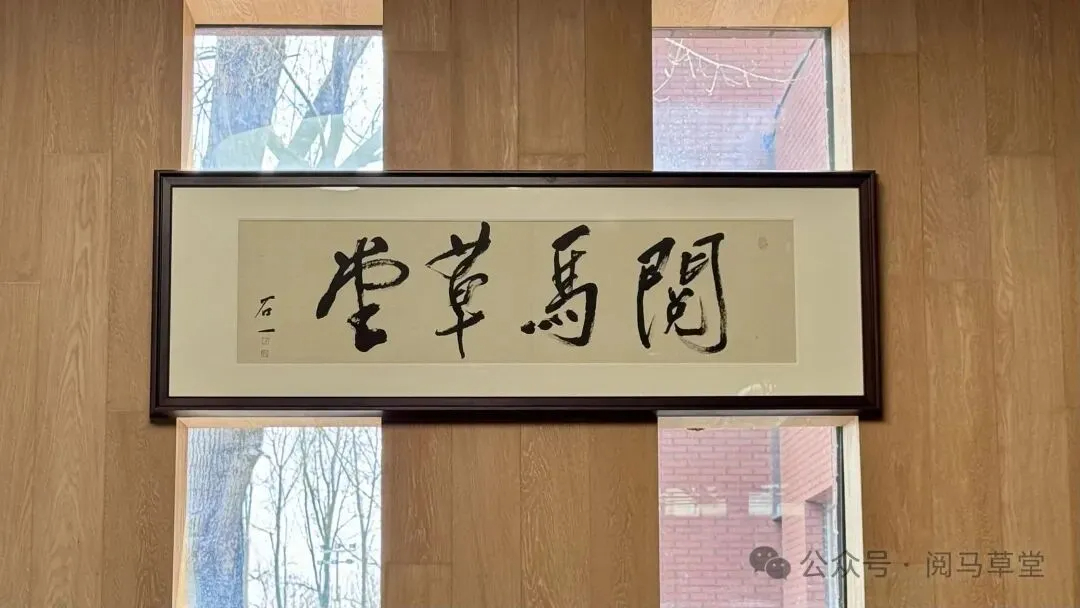 閲馬草堂
石一
公众号·阅马草堂